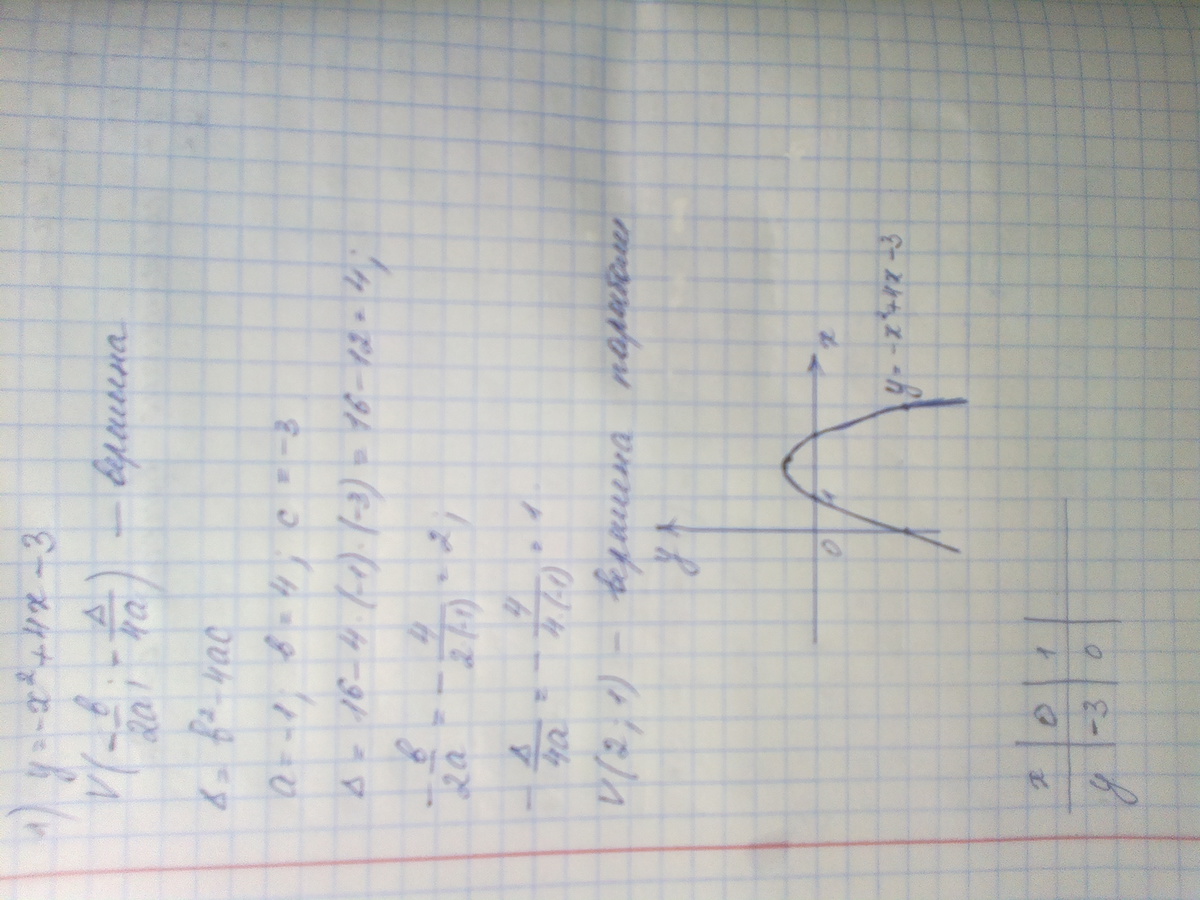 1) y = -x² + 4x - 3
V(-b/2a; -Δ/4a) — вершина
Δ = b² - 4ac
a = -1; b = 4; c = -3
Δ = 16 - 4·(-1)·(-3) = 16 - 12 = 4;
-b/2a = -4/2(-1) = 2;
-Δ/4a = -4/4·(-1) = 1.
V(2; 1) — вершина параболы
y
x
0
1
y = -x² + 4x - 3
x | 0 | 1 |
y | -3 | 0 |